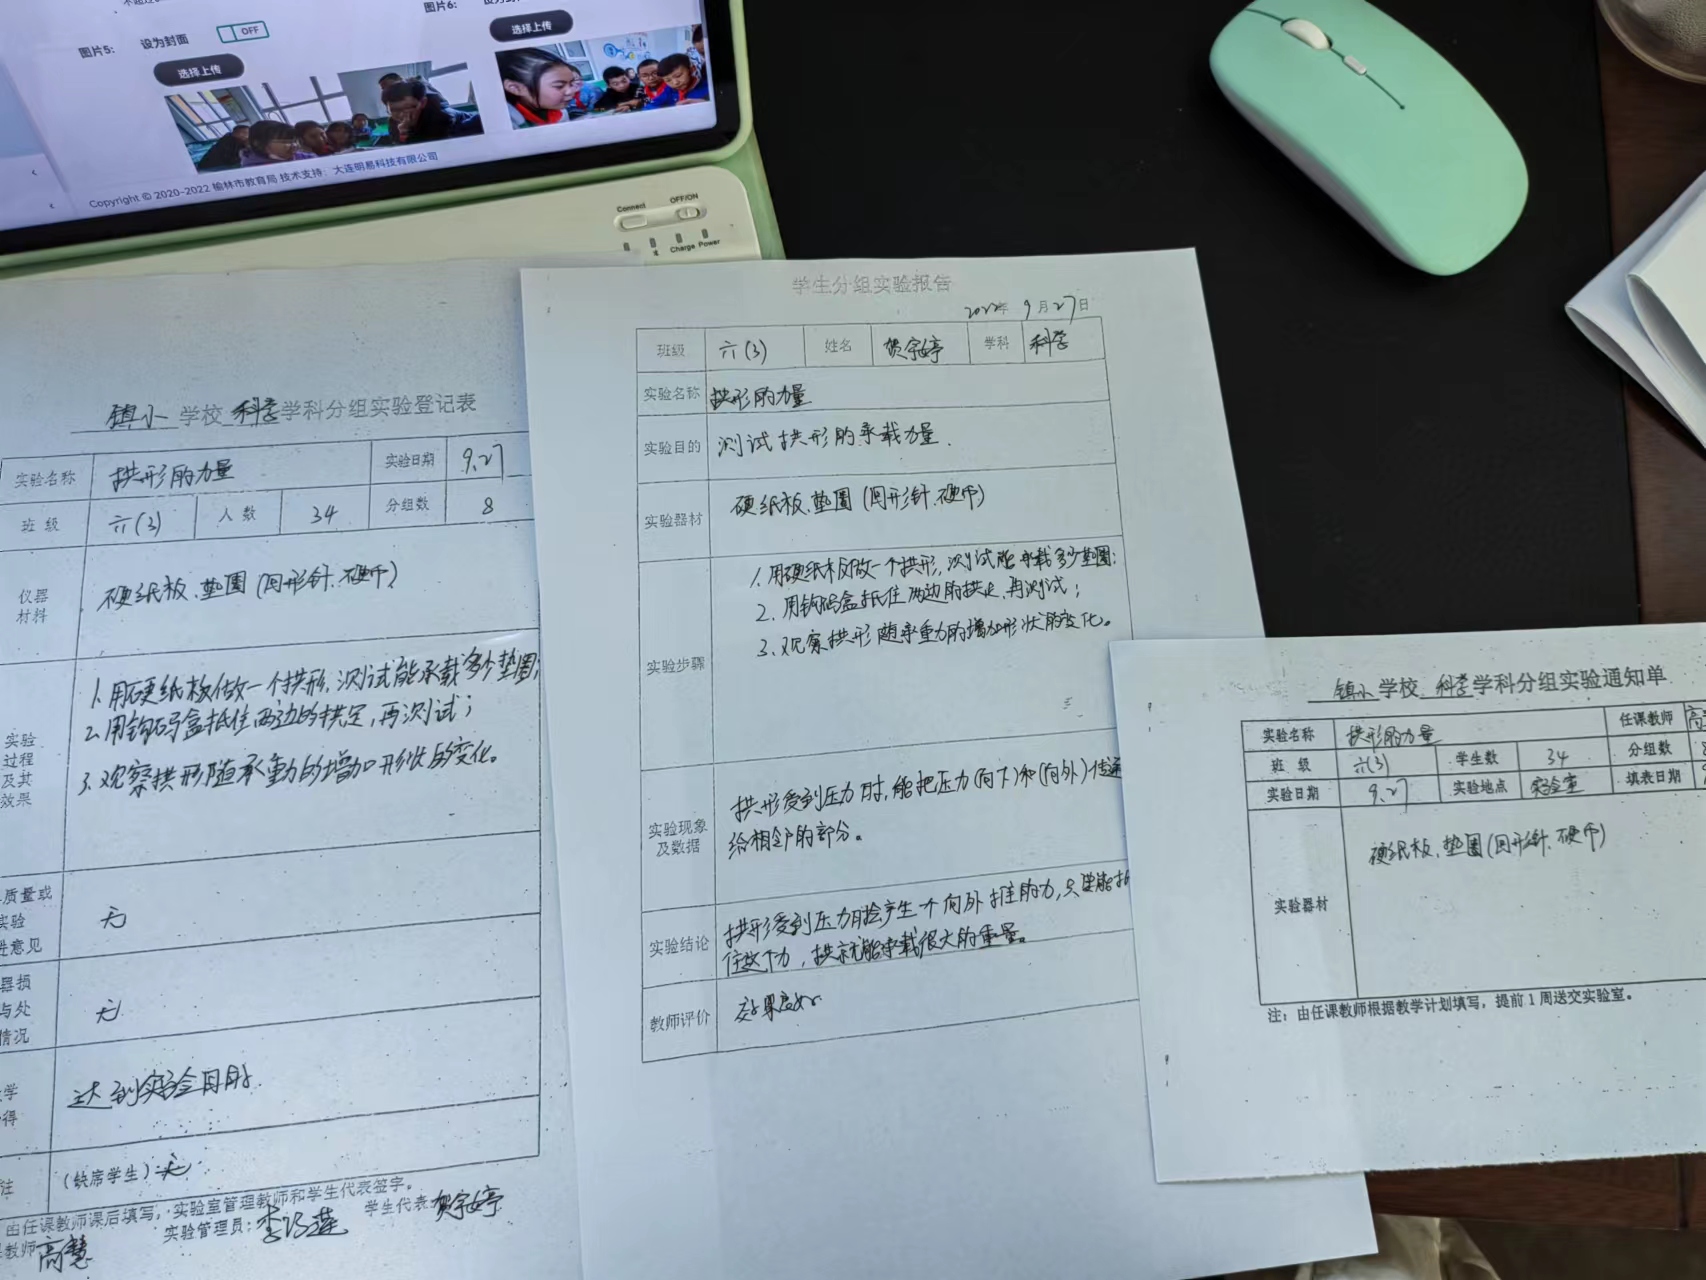 图片5:
设为封面
OFF
选择上传
图片6:
选择上传
Copyright © 2020-2022 榆林市教育局 技术支持：大连明易科技有限公司
Connect
OFF/ON
Charge Power
镇小 学校 科学 学科分组实验登记表
实验名称 拱形的力量 实验日期 9.27
班 级 六(3) 人 数 34 分组数 8
仪器
材料
硬纸板.垫圈(回形针.硬币)
实验
过程
及其
效果
1.用硬纸板做一个拱形,测试能承载多少垫圈;
2.用钩码盒抵住两边的拱足,再测试;
3.观察拱形随承重力的增加形状的变化。
质量或
实验
进意见
无
器损
与处
情况
无
学
得
达到实验目的.
注
(缺席学生):无.
由任课教师课后填写，实验室管理教师和学生代表签字。
教师 高慧
实验管理员:
学生代表 贺宇婷
学生分组实验报告
2022年 9月27日
班级 六(3) 姓名 贺宇婷 学科 科学
实验名称 拱形的力量
实验目的 测试拱形的承载力量.
实验器材 硬纸板.垫圈(回形针.硬币)
实验步骤
1.用硬纸板做一个拱形,测试能承载多少垫圈;
2.用钩码盒抵住两边的拱足,再测试;
3.观察拱形随承重力的增加形状的变化。
实验现象
及数据
拱形受到压力时,能把压力(向下)和(向外)传递
给相邻的部分。
实验结论
拱形受到压力时会产生一个向外推的力,只要能抵
住这个力,拱就能承载很大的重量。
教师评价 效果良好
镇小 学校 科学 学科分组实验通知单
实验名称 拱形的力量 任课教师 高
班 级 六(3) 学生数 34 分组数
实验日期 9.27 实验地点 实验室 填表日期
实验器材
硬纸板.垫圈(回形针.硬币)
注：由任课教师根据教学计划填写，提前1周送交实验室。